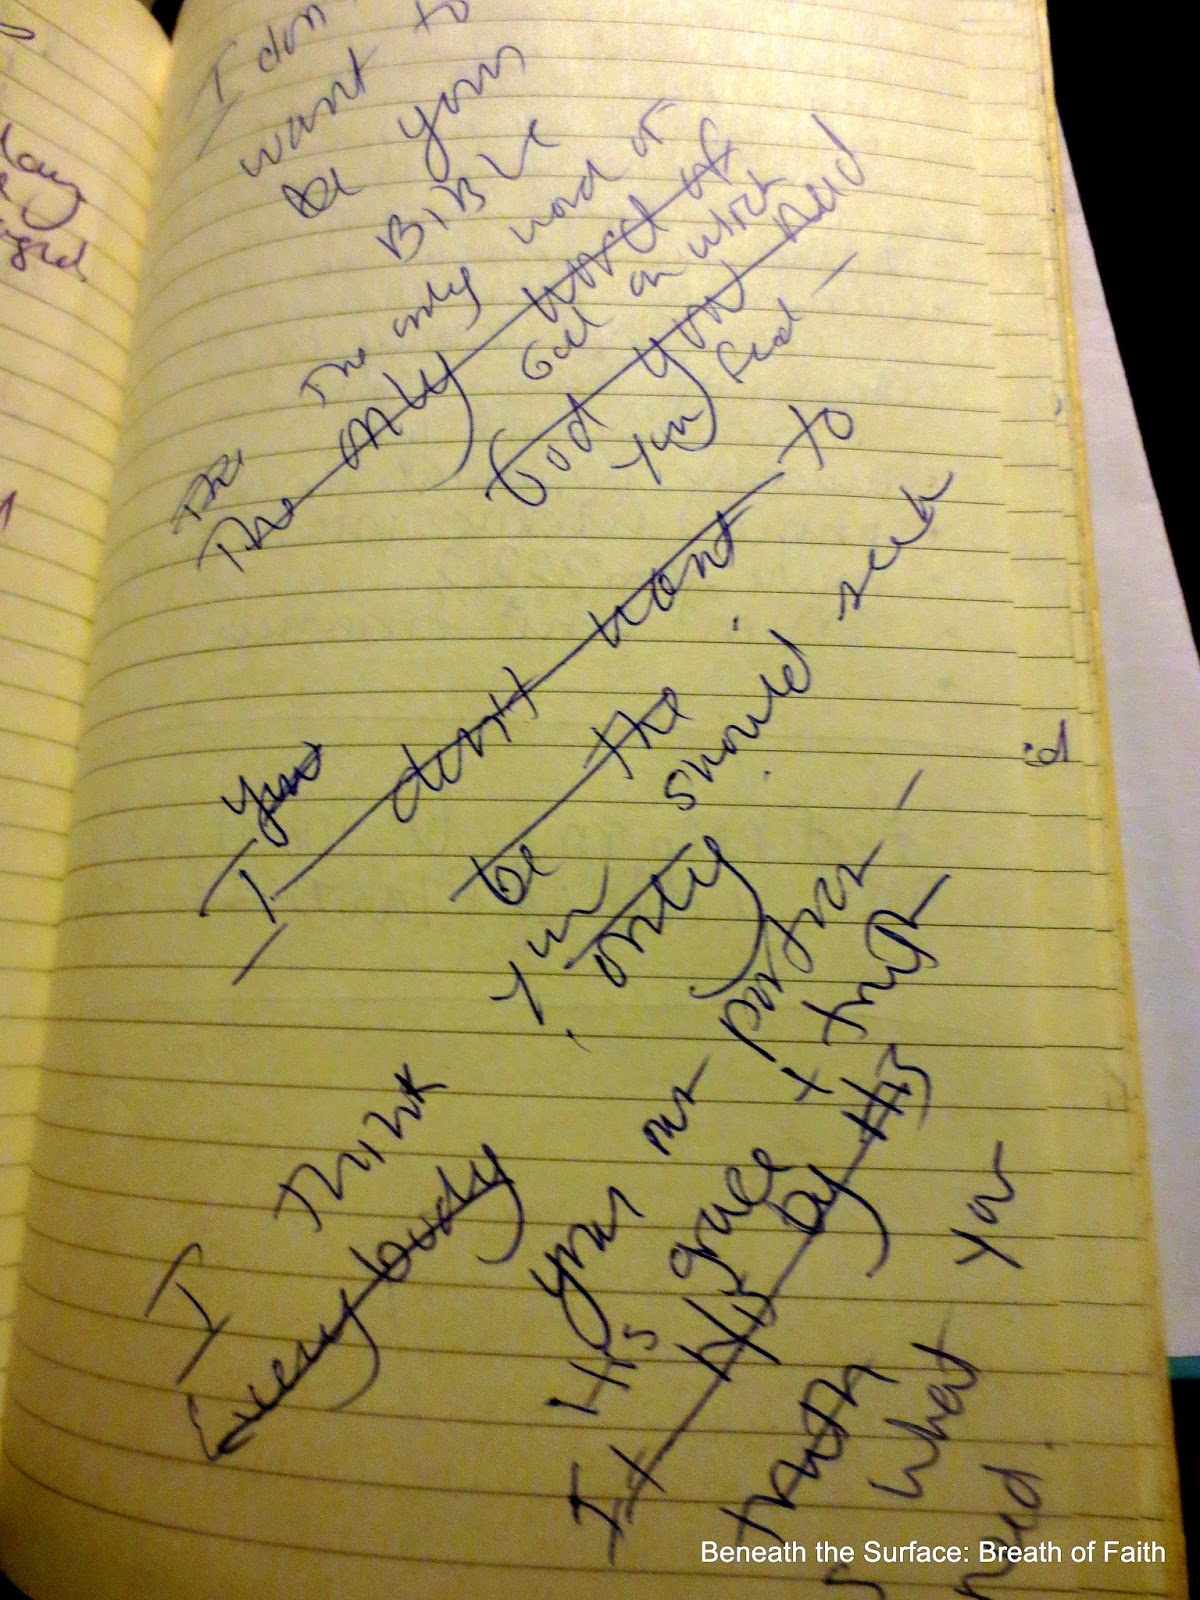 I don
want to
be your
BIBLE
The only word of
The
The only word of
God on which
God you need
You feed —
I don't want to
be the
You should seek
only
your own portion —
I think
Everybody
His grace + truth —
It His by His
truth
s what you
need.
lay
id
Beneath the Surface: Breath of Faith